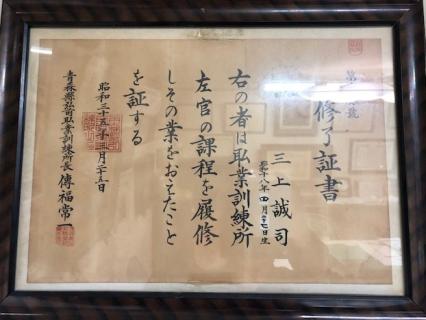 第 號
修了証書
三上誠司
昭十八年四月 日生
右の者は職業訓練所
左官の課程を履修
しその業をおえたこと
を証する
昭和三十五年三月 日
青森縣弘前職業訓練所長 傳福常一